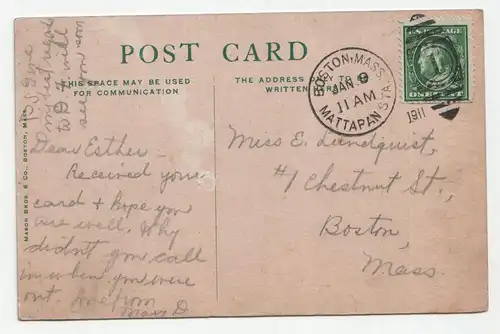 POST CARD
THIS SPACE MAY BE USED
FOR COMMUNICATION
THE ADDRESS TO B
WRITTEN
BOSTON, MASS.
JAN 9
11 AM
MATTAPAN STA.
1911
U.S. POSTAGE
ONE CENT
P.S. Give
my best regards
to D & will
see you soon
Dear Esther -
Received your
card & hope you
are well. Why
didn't you call
in when you were
out. from
Mary D
Miss E. Lundquist,
#1 Chestnut St.,
Boston,
Mass.
MASON BROS. & CO., BOSTON, MASS.